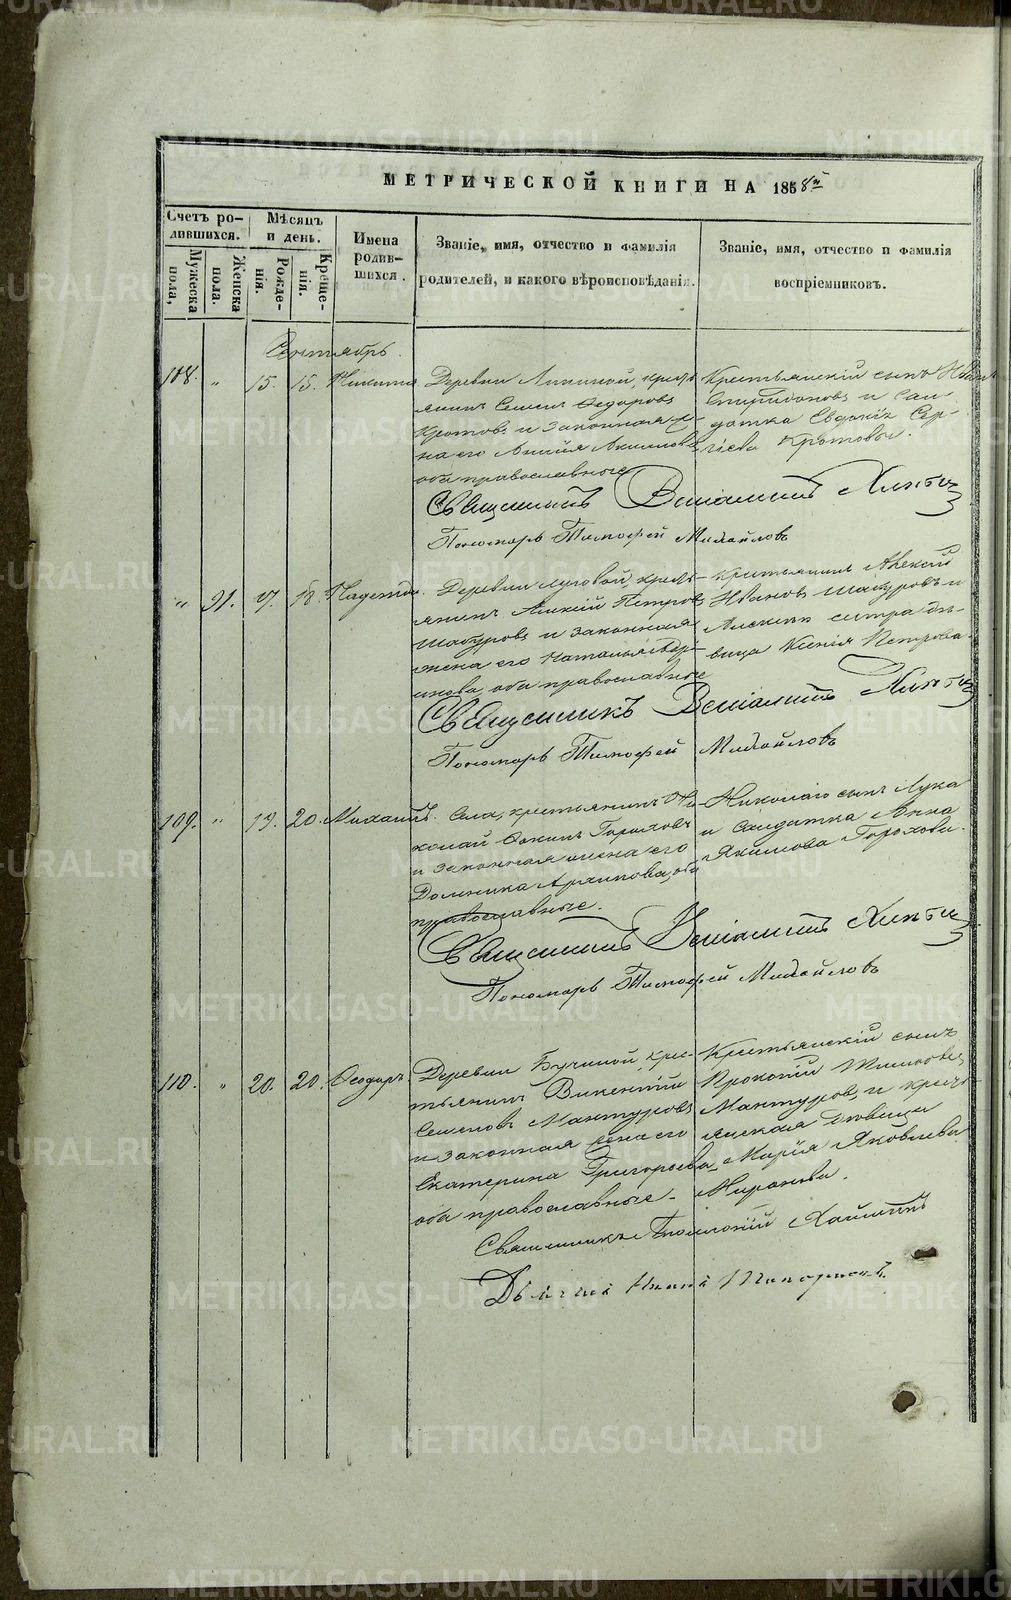 МЕТРИЧЕСКОЙ КНИГИ НА 1858й
Счетъ ро-
дившихся.
Мужеска
пола,
Женска
пола.
Мѣсяцъ
и день.
Рожде-
нія.
Креще-
нія.
Имена
родив-
шихся.
Званіе, имя, отчество и фамилія
родителей, и какого вѣроисповѣданія.
Званіе, имя, отчество и фамилія
воспріемниковъ.
Сентябрь.
108. " 15. 15. Никита
Деревни Липиной, кресть-
янинъ Семенъ Ѳедоровъ
Кротовъ и законная же-
на его
оба православные
Крестьянскій сынъ Иванъ
Спиридоновъ и Сол-
датка Евдокія Сер-
гіева Кротовы.
Священникъ Веніаминъ
Пономарь Тимофей Михайловъ
" 91. 17. 18. Надежда.
Деревни Луговой, кресть-
янинъ Алексій Петровъ
Шабуровъ и законная
жена его Наталья
оба православные
Крестьянинъ Алексій
Ивановъ Шабуровъ и
сестра дѣ-
вица Ксенія Петрова.
Священникъ Веніаминъ
Пономарь Тимофей Михайловъ
109. " 19. 20. Михаилъ.
Села, крестьянинъ Ни-
колай Гороховъ
и законная жена его
Домника Архипова, оба
православные.
Николаю сынъ Лука
и Солдатка Анна
Якимова Горохова.
Священникъ Веніаминъ
Пономарь Тимофей Михайловъ
110. " 20. 20. Ѳеодоръ.
Деревни Бучиной, крес-
тьянинъ Викентій
Семеновъ Мантуровъ
и законная жена его
Екатерина Григорьева,
оба православные.
Крестьянскій сынъ
Прокопій
Мантуровъ, и кресть-
янская дѣвица
Марія Яковлева
Миронова.
Священникъ
METRIKI.GASO-URAL.RU